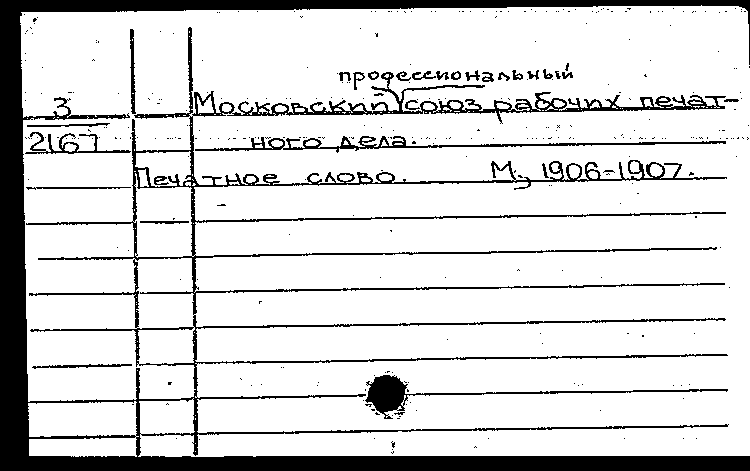 профессиональный
3 Московский союз рабочих печат-
2167 ного дела.
Печатное слово. М., 1906-1907.